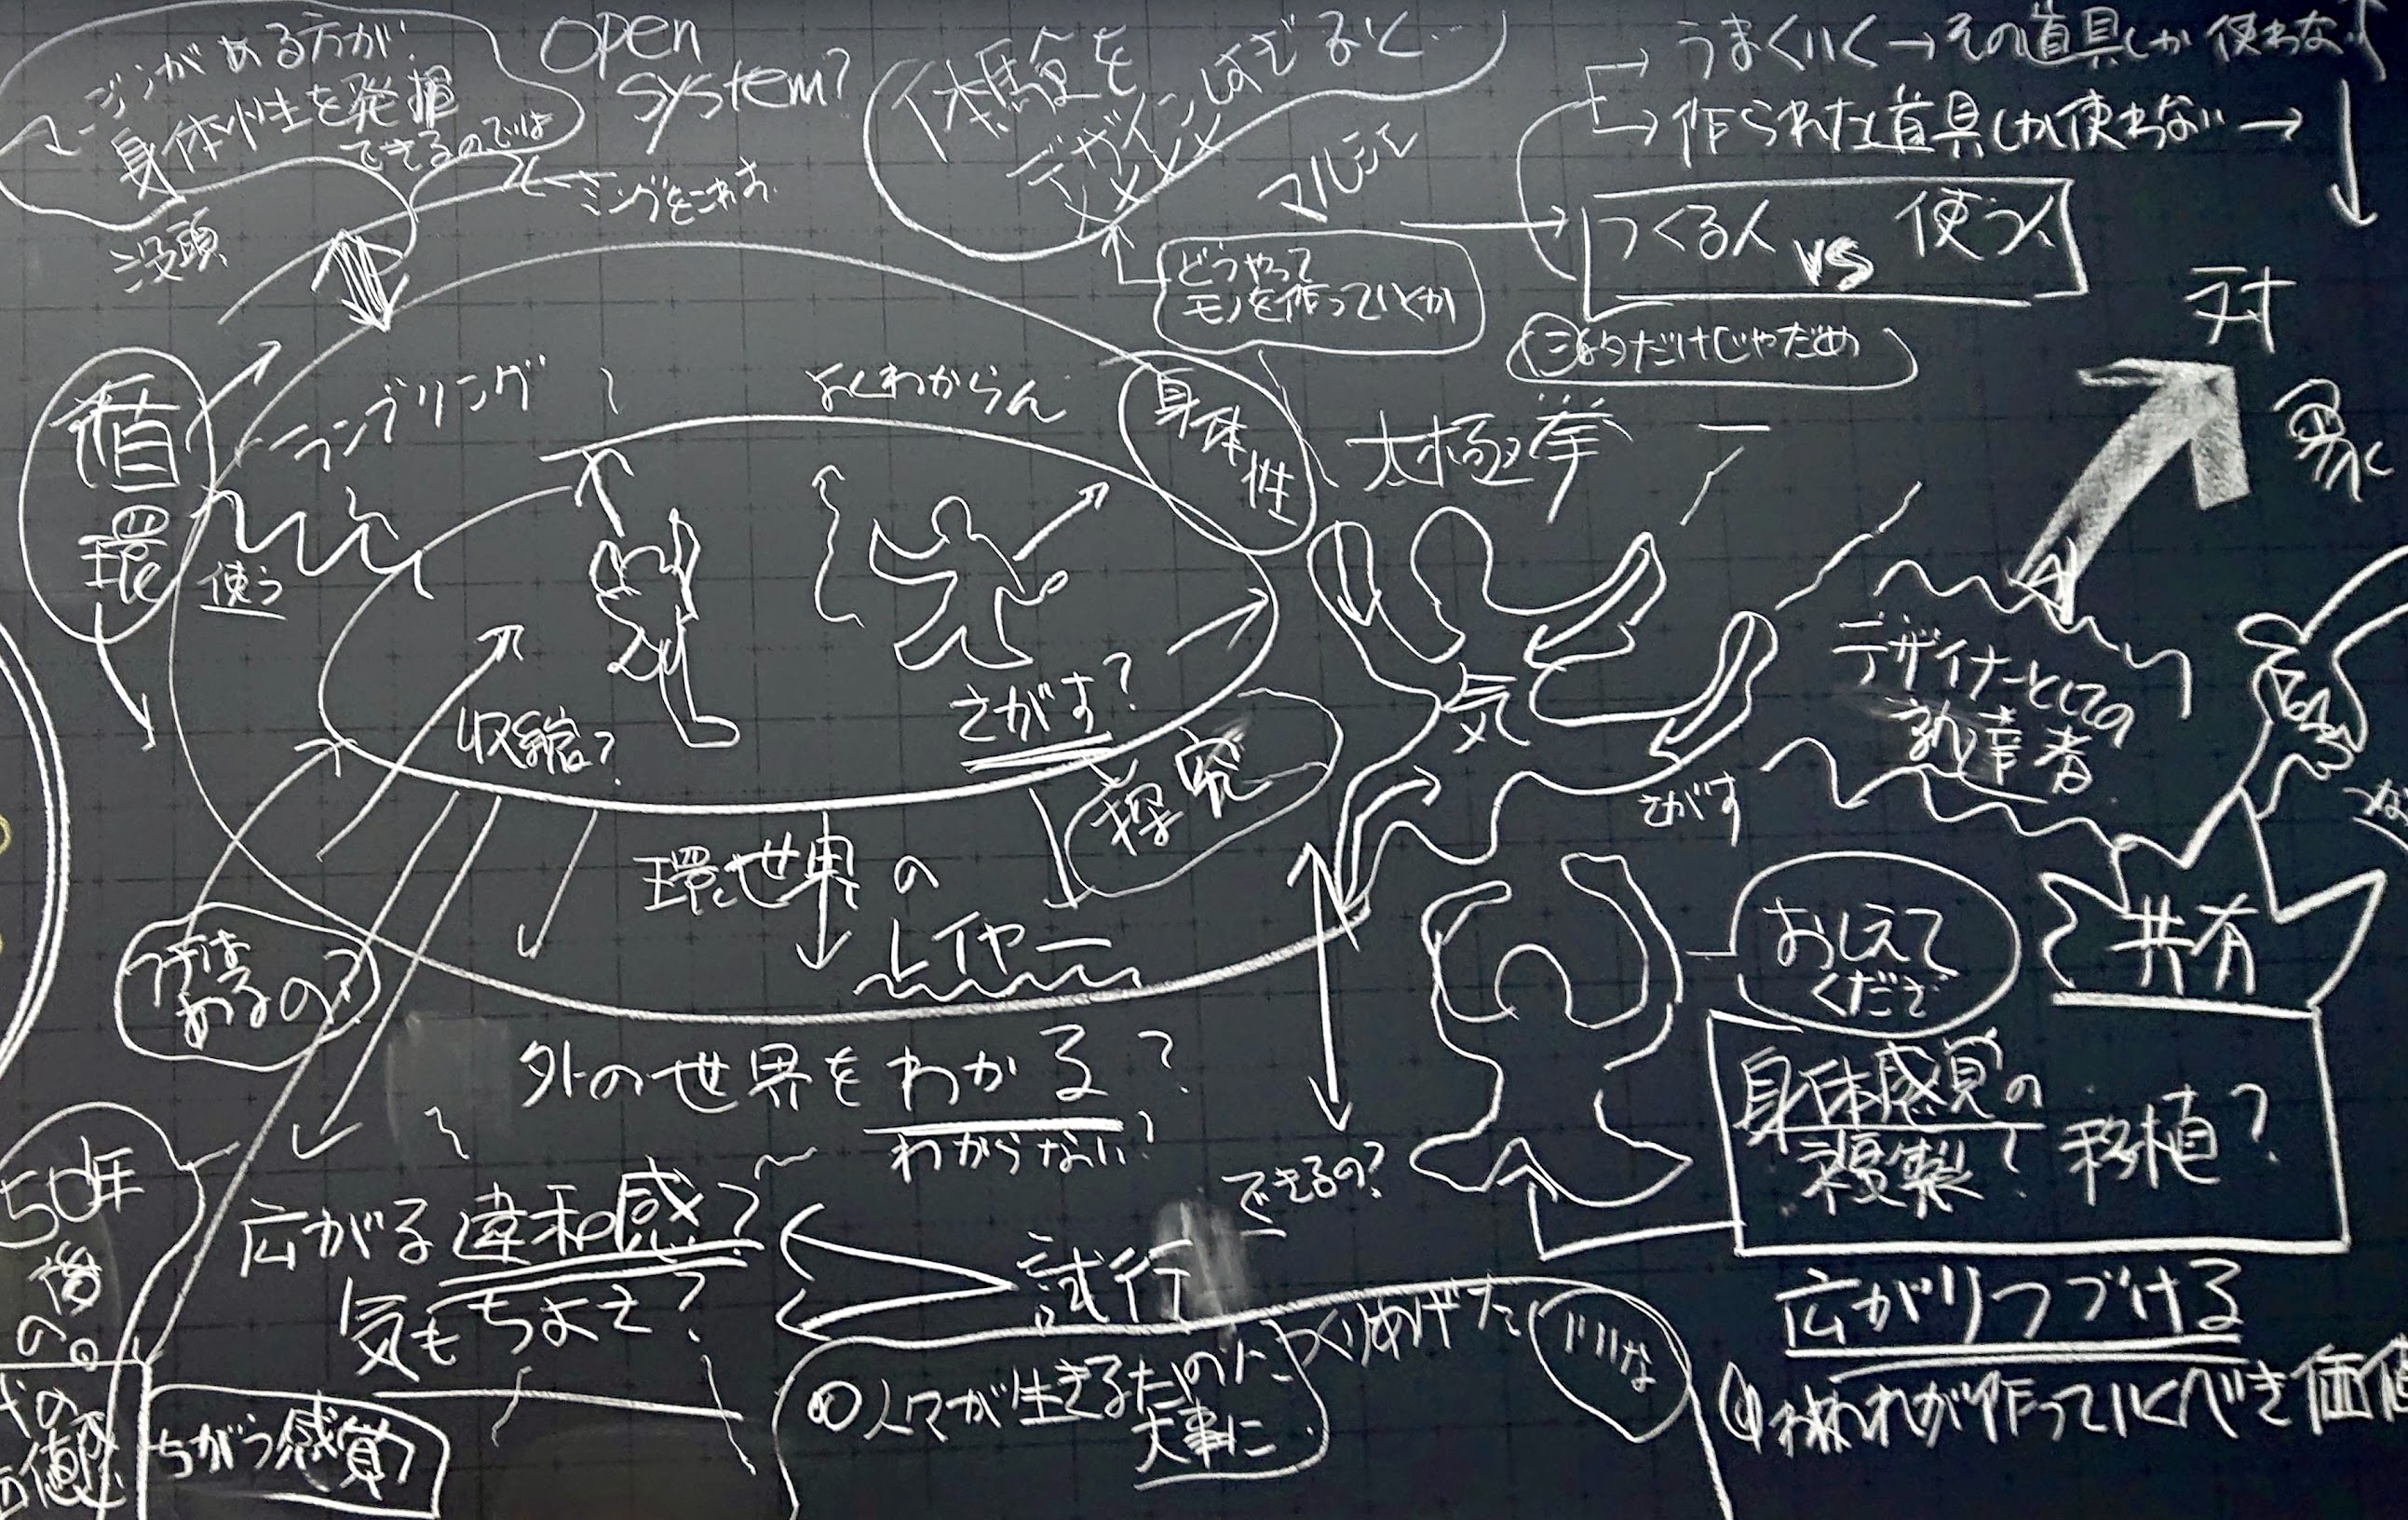 マージンがある方が
身体性を発揮
できるのでは
没頭
open
system?
体験を
デザインしすぎるく
マルシェ
どうやって
モノを作っていくか
うまくいく→その道具しか使わない
作られた道具しか使わない→
つくる人 vs 使う人
だけじゃだめ
対
象
循
環
使う
ランブリング
よくわからん
身体
性
太極拳
収縮?
さがす?
探究
気
さがす
デザイナーとしての
熟達者
環世界の
レイヤー
あるの?
外の世界をわかる?
わからない?
できるの?
おしえて
くだせ
共有
身体感覚の
複製? 移植?
広がりつづける
われわれが作っていくべき価値
50年
後
の。
価値感
広がる違和感?
気もちよさ?
試行
ちがう感覚
人々が生きるために
大事に
つくりあげた